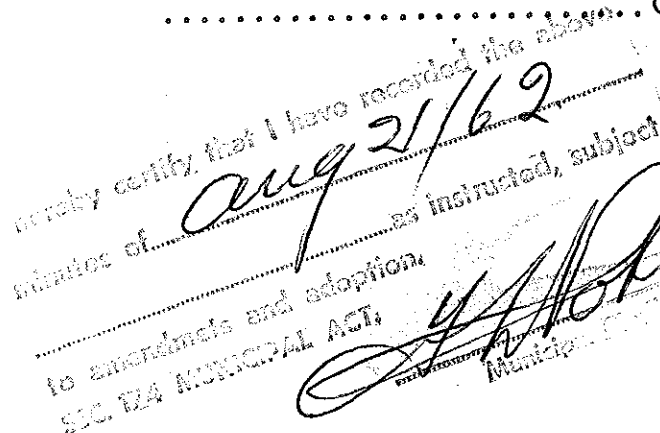 hereby certify that I have recorded the above
minutes of Aug 21/62
as instructed, subject
to amendments and adoption.
SEC. 174 MUNICIPAL ACT.